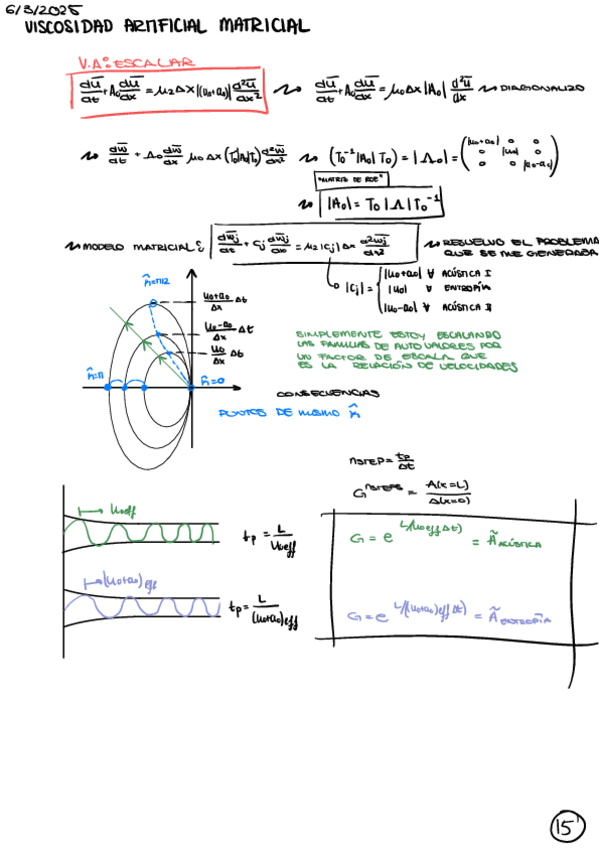 6/3/2025
VISCOSIDAD ARTIFICIAL MATRICIAL
V.A: ESCALAR
dū/dt + A₀ dū/dx = μ₂Δx |(u₀+a₀)| d²ū/dx² ⇝ dū/dt + A₀ dū/dx = μ₀Δx|A₀| d²ū/dx ⇝ DIAGONALIZO
⇝ dw̄/dt + Λ₀ dw̄/dx μ₀Δx (T₀⁻¹|A₀|T₀) d²w̄/dx² ⇝ (T₀⁻¹|A₀|T₀) = |Λ₀| = ( |u₀+a₀| 0 0
0 |u₀| 0
0 0 |u₀-a₀| )
"MATRIZ DE ROE"
⇝ |A₀| = T₀|Λ|T₀⁻¹
⇝ MODELO MATRICIAL dw̄j/dt + Cj dw̄j/dx = μ₂|Cj|Δx d²w̄j/dx² ⇝ RESUELVO EL PROBLEMA
QUE SE ME GENERABA
|Cj| = { |u₀+a₀| ∀ ACÚSTICA I
|u₀| ∀ ENTROPÍA
|u₀-a₀| ∀ ACÚSTICA II
k̂=π/2
(u₀+a₀)/Δx Δt
(u₀-a₀)/Δx Δt
u₀/Δx Δt
k̂=π
k̂=0
SIMPLEMENTE ESTOY ESCALANDO
LAS FAMILIAS DE AUTOVALORES POR
UN FACTOR DE ESCALA QUE
ES LA RELACIÓN DE VELOCIDADES
CONSECUENCIAS
PUNTOS DE MISMO k̂
nSTEP = tp/Δt
G^nSTEPS = A(x=L)/A(x=0)
u₀eff
tp = L/U₀eff
G = e^L/(u₀effΔt) = ÃACÚSTICA
(u₀+a₀)eff
tp = L/(u₀+a₀)eff
G = e^L/((u₀+a₀)effΔt) = ÃENTROPÍA
15